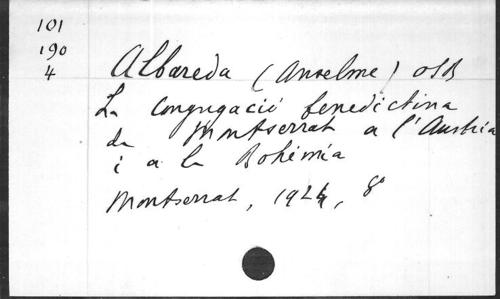 101
190
4
Albareda (Anselme) OSB
La Congregació benedictina
de Montserrat a l'Austria
i a la Bohèmia
Montserrat, 1924, 8º